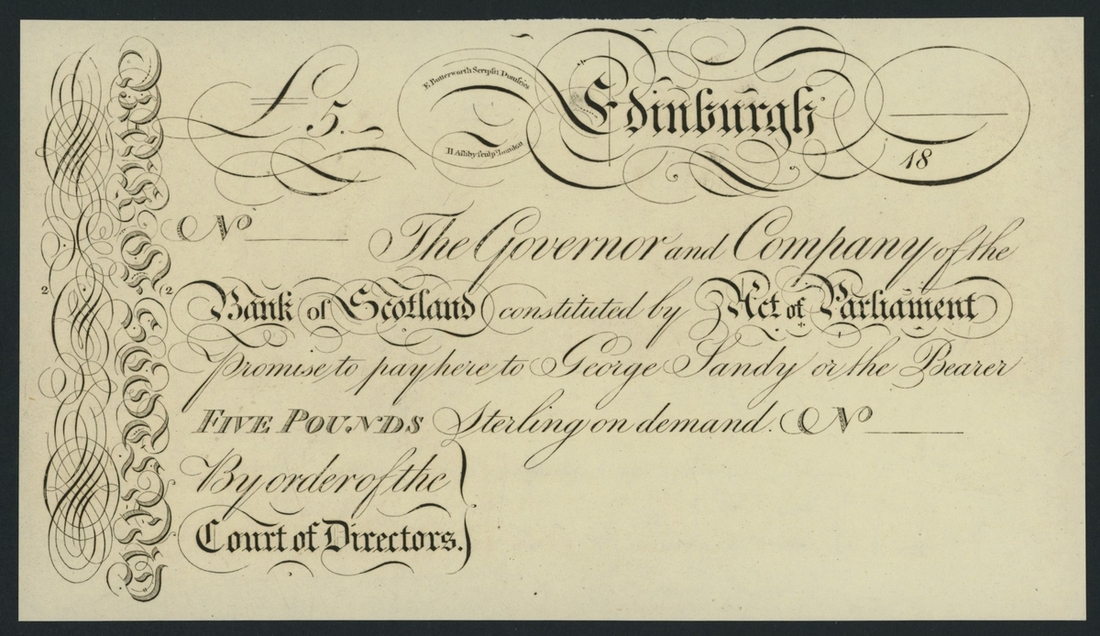 BANK OF SCOTLAND
£5.
E. Butterworth Scripsit Dumfries
H. Ashby sculpt. London
Edinburgh
18
No
The Governor and Company of the
2
2
Bank of Scotland constituted by Act of Parliament
Promise to pay here to George Sandy or the Bearer
FIVE POUNDS Sterling on demand. No
By order of the
Court of Directors.